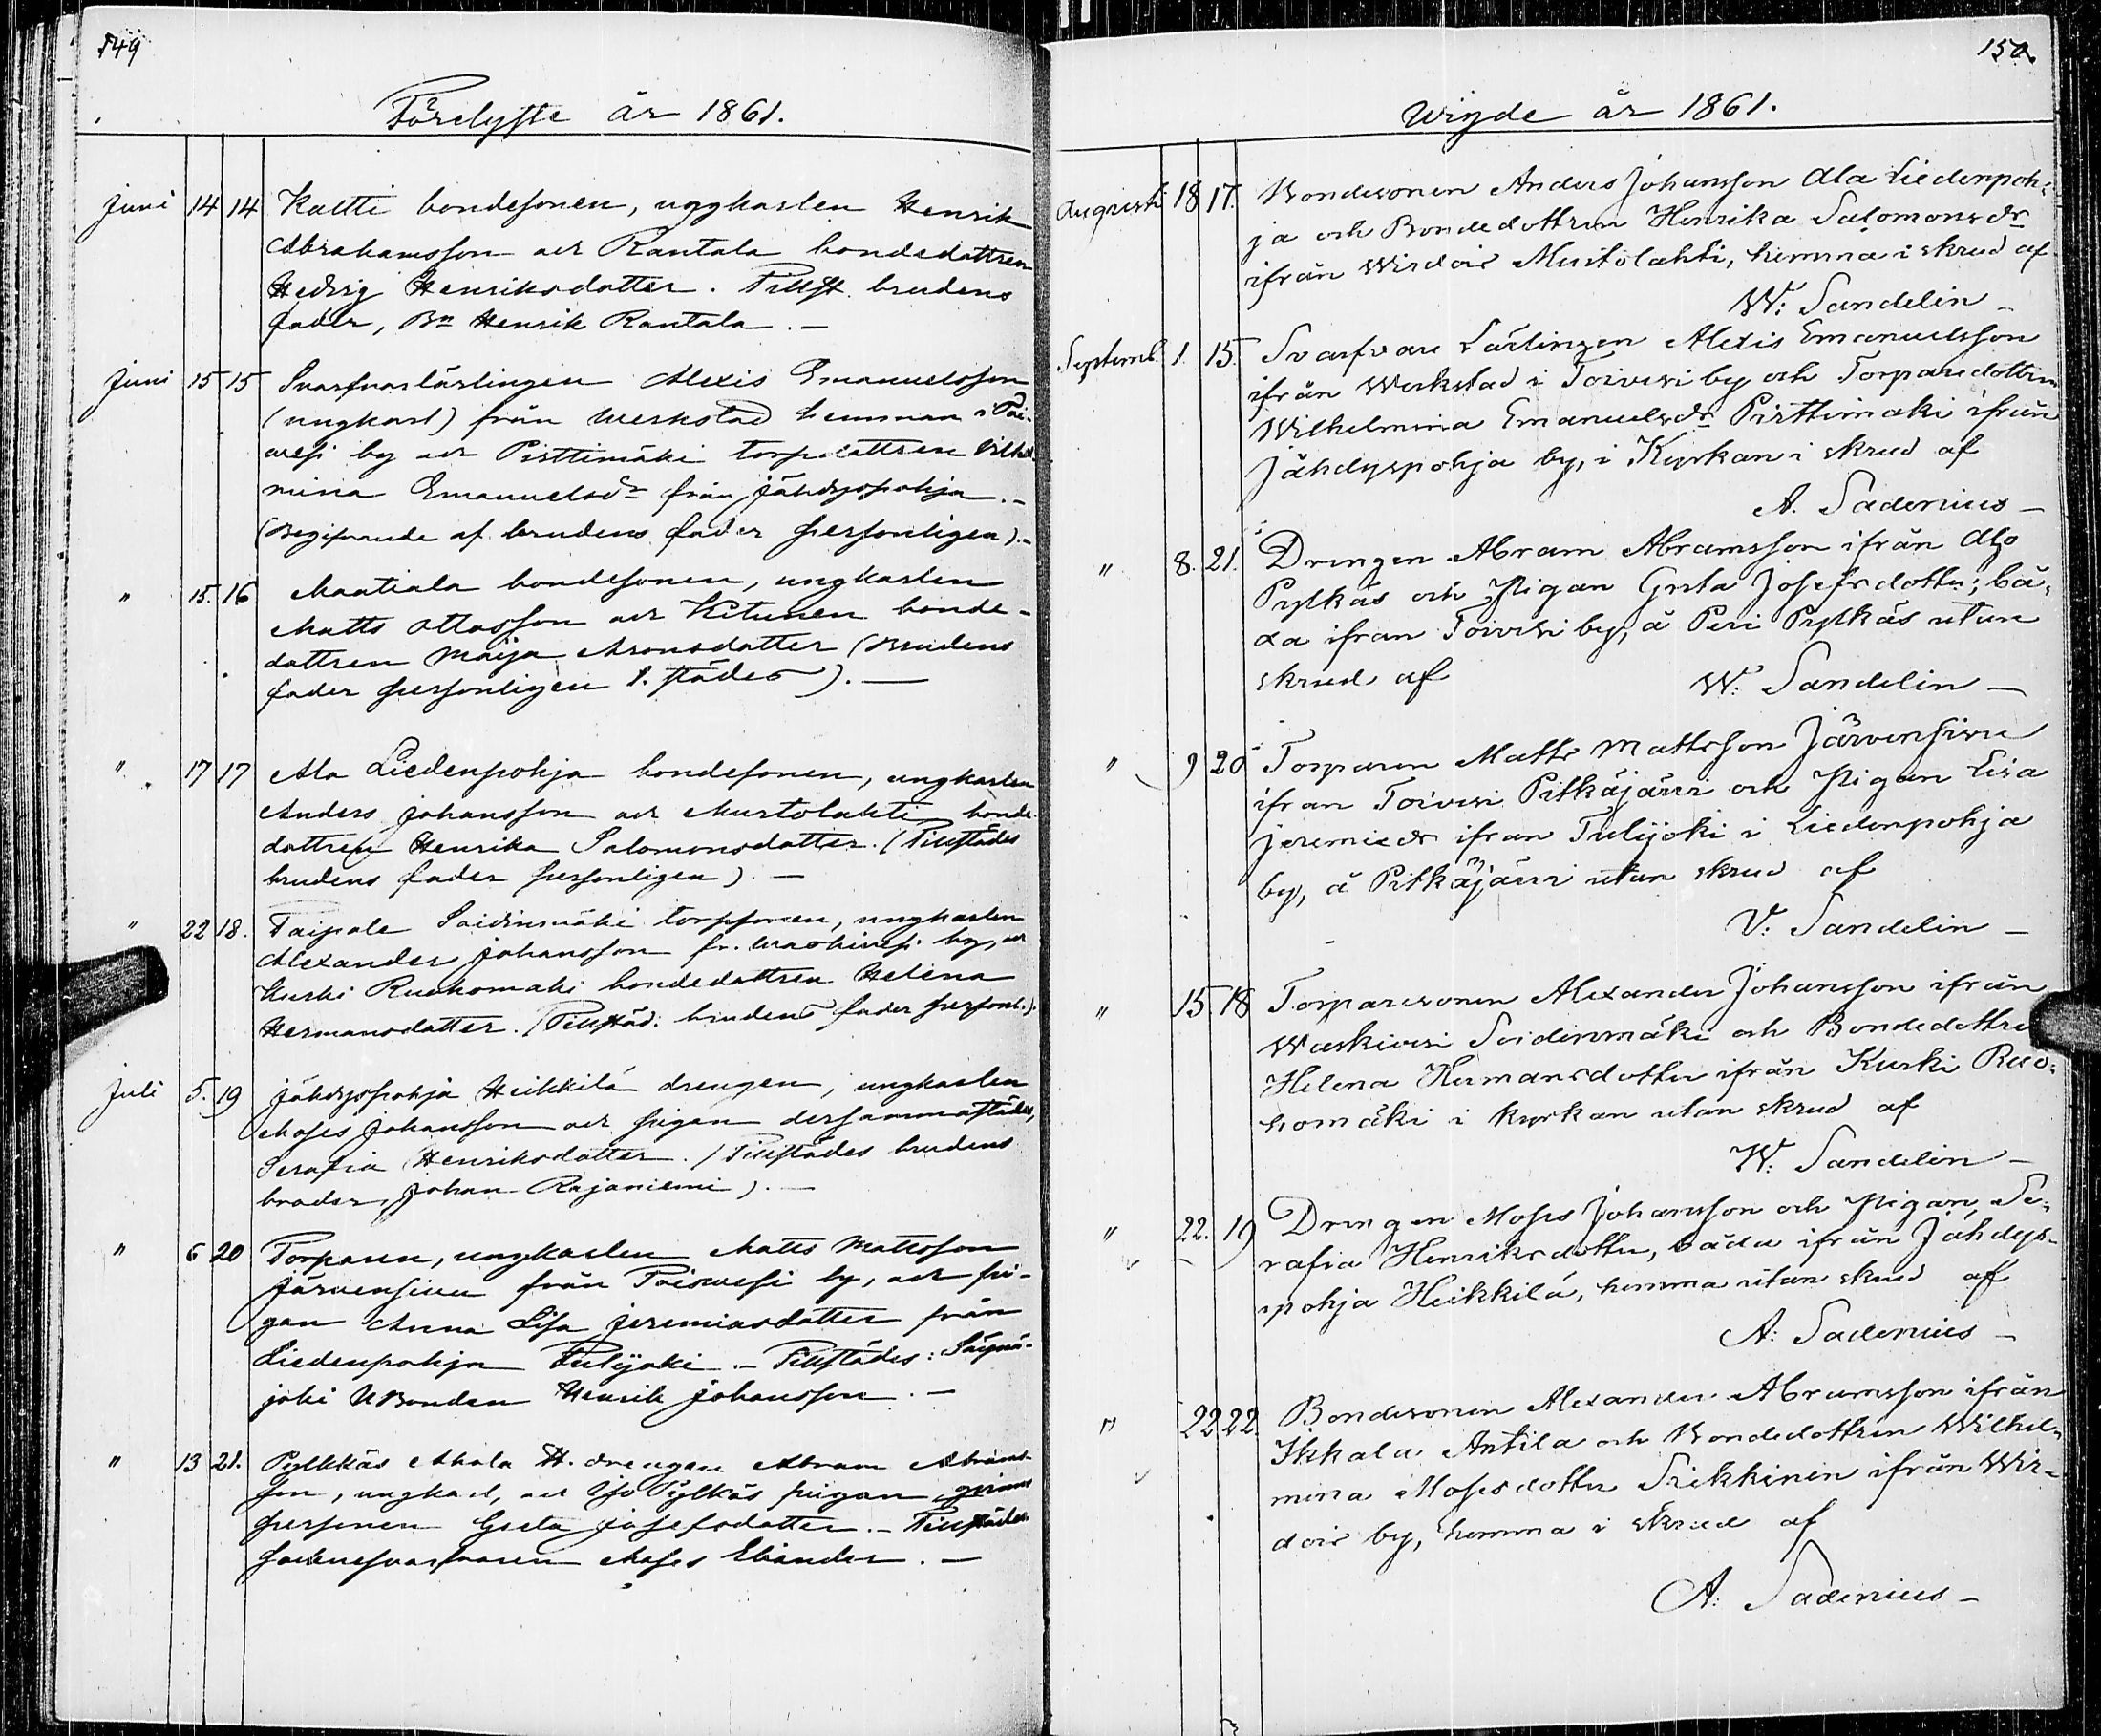 149
Förelyste år 1861.
Juni 14 14 Kaltti bondesonen, ungkarlen Henrik
Abrahamsson och Rantala bondedottren
Hedvig Henriksdotter. Tillst. brudens
fader, Bn Henrik Rantala. —
Juni 15 15 Svarfvarlärlingen Alexis Emanuelsson
(ungkarl) från Werkstad hemman i Toi-
vesi by och Pirttimäki torpdottren Vilhel-
mina Emanuelsdr från Jähdyspohja. —
(Begifvande af brudens fader personligen). —
" 15. 16 Maatiala bondesonen, ungkarlen
Matts Ottosson och Kitunen bonde-
dottren Maija Aronsdotter (Brudens
fader personligen t. städes). —
" 17 17 Ala Liedenpohja bondesonen, ungkarlen
Anders Johansson och Mustolahti bonde-
dottren Henrika Salomonsdotter. (Tillstädes
brudens fader personligen). —
" 22 18. Taipale Soidinmäki torpsonen, ungkarlen
Alexander Johansson fr. Waskivesi by, och
Kurki Ruohomäki bondedottren Helena
Hermansdotter. (Tillstäd. brudens fader personl.).
Juli 5. 19 Jähdyspohja Heikkilä drengen, ungkarlen
Moses Johansson och pigan dersammastädes,
Serafia Henriksdotter. (Tillstädes brudens
broder, Johan Rajaniemi). —
" 6 20 Torparen, ungkarlen Matts Mattsson
Järvensivu från Toivesi by, och pi-
gan Anna Lisa Jeremiasdotter från
Liedenpohja Tulijoki. — Tillstädes:
joki Bonden Henrik Johansson. —
" 13 21. Pylkkäs Ahola H. drengen Abram Abrams-
son, ungkarl, och Yjo Pylkäs pigan, qvinns
personen Greta Josefsdotter. — Tillstädes
Moses Elander. —
150.
Wigde år 1861.
Augusti 18 17. Bondesonen Anders Johansson Ala Liedenpoh-
ja och Bondedottren Henrika Salomonsdr
ifrån Wirdois Mustolahti, hemma i skrud af
W: Sandelin —
Septemb. 1. 15. Svarfvare Lärlingen Alexis Emanuelsson
ifrån Werkstad i Toivesi by och Torparedottren
Wilhelmina Emanuelsdr Pirttimäki ifrån
Jähdyspohja by, i Kyrkan i skrud af
A. Sadenius —
" 8. 21. Drengen Abram Abramsson ifrån Yjo
Pylkäs och Pigan Greta Josefsdotter; bå-
da ifrån Toivesi by, å Peri Pylkäs utan
skrud af W: Sandelin —
" 9 20 Torparen Matts Mattsson Järvensivu
ifrån Toivesi Pitkäjärvi och Pigan Lisa
Jeremiedr ifrån Tulijoki i Liedenpohja
by, å Pitkäjärvi utan skrud af
V: Sandelin —
" 15. 18 Torparesonen Alexander Johansson ifrån
Waskivesi Soidinmäki och Bondedottren
Helena Hermansdotter ifrån Kurki Ruo-
homäki i kyrkan utan skrud af
W: Sandelin —
" 22. 19 Drengen Moses Johansson och Pigan, Se-
rafia Henriksdotter, båda ifrån Jähdys-
pohja Heikkilä, hemma utan skrud af
A: Sadenius —
" 22 22. Bondesonen Alexander Abramsson ifrån
Ikkala Antila och Bondedottren Wilhel-
mina Mosesdotter Siekkinen ifrån Wir-
dois by, hemma i skrud af
A: Sadenius —